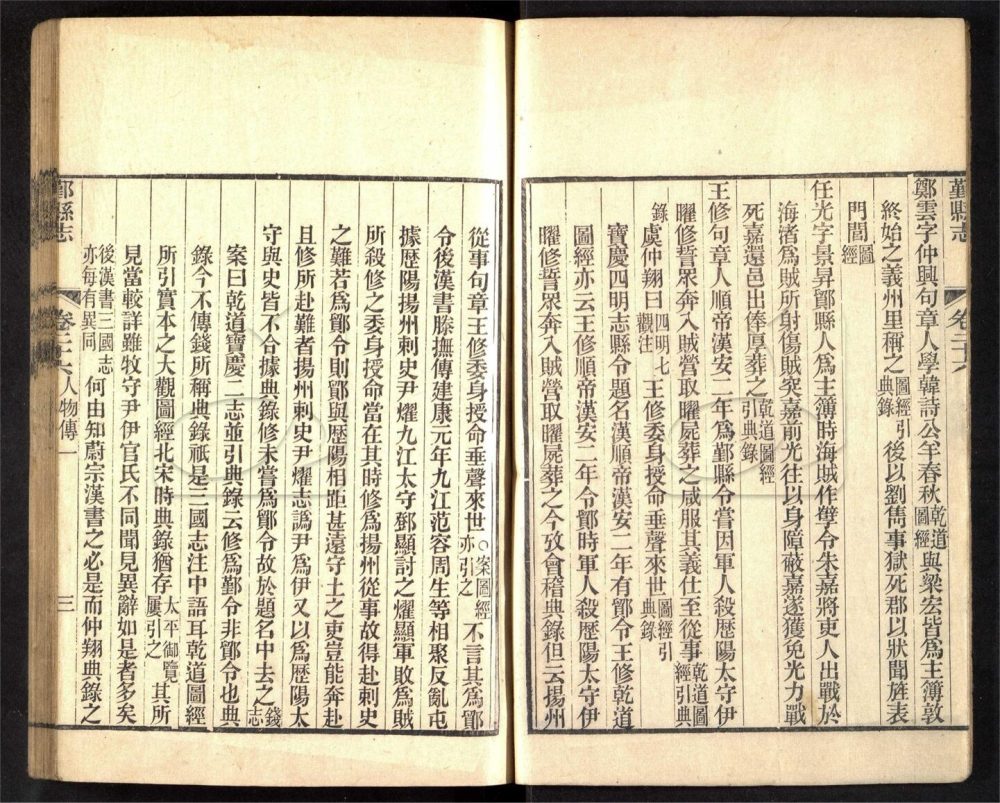 鄞縣志 卷二十六
鄭雲字仲興句章人學韓詩公羊春秋乾道圖經與梁宏皆爲主簿敦
終始之義州里稱之圖經引典錄後以劉雋事獄死郡以狀聞旌表
門閭圖經
任光字景昇鄮縣人爲主簿時海賊作孽令朱嘉將吏人出戰於
海渚爲賊所射傷賊突嘉前光往以身障蔽嘉遂獲免光力戰
死嘉還邑出俸厚葬之乾道圖經引典錄
王修句章人順帝漢安二年爲鄞縣令嘗因軍人殺歷陽太守伊
曜修誓眾奔入賊營取曜屍葬之咸服其義仕至從事乾道圖經引典
錄虞仲翔曰四明七觀注王修委身授命垂聲來世圖經引典錄
寶慶四明志縣令題名漢順帝漢安二年有鄮令王修乾道
圖經亦云王修順帝漢安二年令鄮時軍人殺歷陽太守伊
曜修誓眾奔入賊營取曜屍葬之今攷會稽典錄但云揚州
從事句章王修委身授命垂聲來世○案圖經亦引之不言其爲鄮
令後漢書滕撫傳建康元年九江范容周生等相聚反亂屯
據歷陽揚州刺史尹燿九江太守鄧顯討之燿顯軍敗爲賊
所殺修之委身授命當在其時修爲揚州從事故得赴刺史
之難若爲鄮令則鄮與歷陽相距甚遠守土之吏豈能奔赴
且修所赴難者揚州刺史尹燿志譌尹爲伊又以爲歷陽太
守與史皆不合據典錄修未嘗爲鄮令故於題名中去之錢志
案曰乾道寶慶二志並引典錄云修爲鄞令非鄮令也典
錄今不傳錢所稱典錄祇是三國志注中語耳乾道圖經
所引實本之大觀圖經北宋時典錄猶存太平御覽屢引之其所
見當較詳雖牧守尹伊官氏不同聞見異辭如是者多矣
後漢書三國志亦每有異同何由知蔚宗漢書之必是而仲翔典錄之
鄞縣志 卷二十六 人物傳一 三